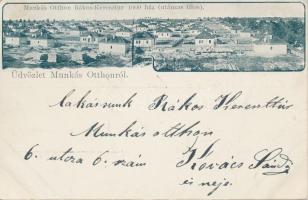 Munkás Otthon Rákos-Keresztur 1000 ház (utánzás tilos).
Üdvözlet Munkás Otthonról.
lakásunk Rákos Keresttúr
Munkás otthon
6. utcza 6. szám Kovács Sándor
és neje.